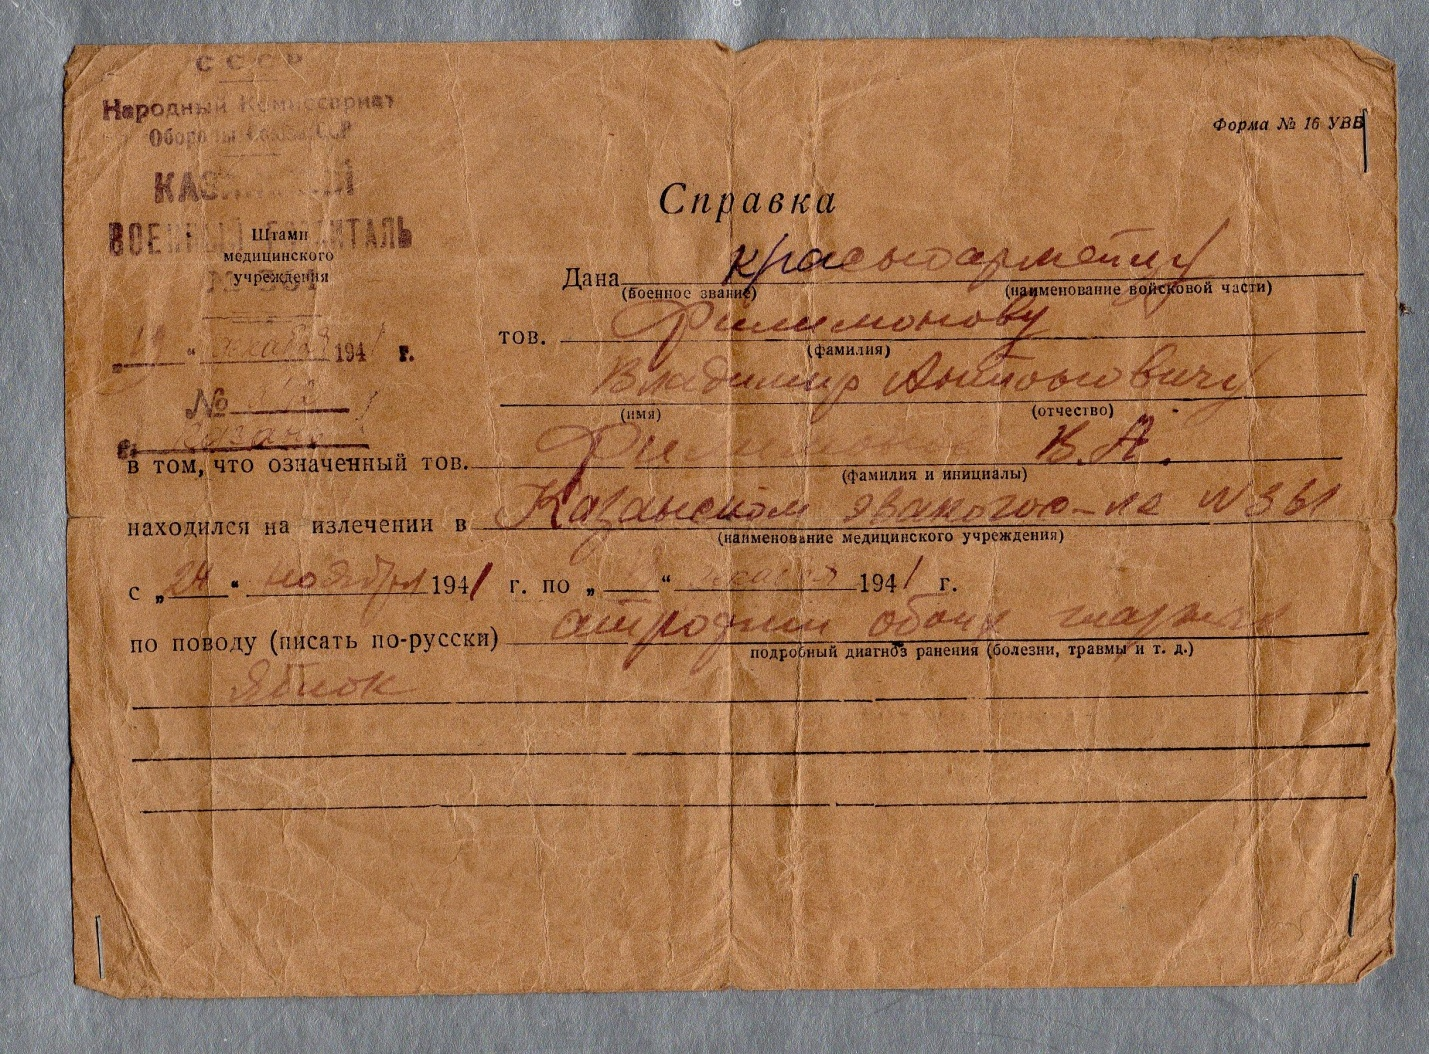 СССР
Народный Комиссариат
Обороны Союза ССР
КАЗАНСКИЙ
ВОЕННЫЙ ГОСПИТАЛЬ
№ 361
Штамп
медицинского
учреждения
„19“ декабря 1941 г.
№
г. Казань
Форма № 16 УВВ
Справка
Дана красноармейцу
(военное звание) (наименование войсковой части)
тов. Филимонову
(фамилия)
Владимир Антоновичу
(имя) (отчество)
в том, что означенный тов. Филимонов В.А.
(фамилия и инициалы)
находился на излечении в Казанском эвакогос-ле N 361
(наименование медицинского учреждения)
с „24“ ноября 1941 г. по „ “ декабря 1941 г.
по поводу (писать по-русски) атрофии обоих глазных
подробный диагноз ранения (болезни, травмы и т. д.)
яблок